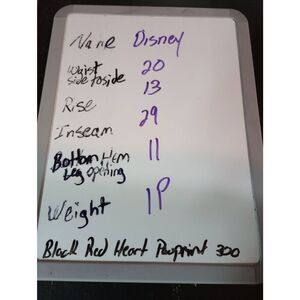 Name Disney
Waist
side to side 20
13
Rise
29
Inseam
Bottom Hem 11
Leg opening
Weight 1P
Black Red Heart Pawprint 300